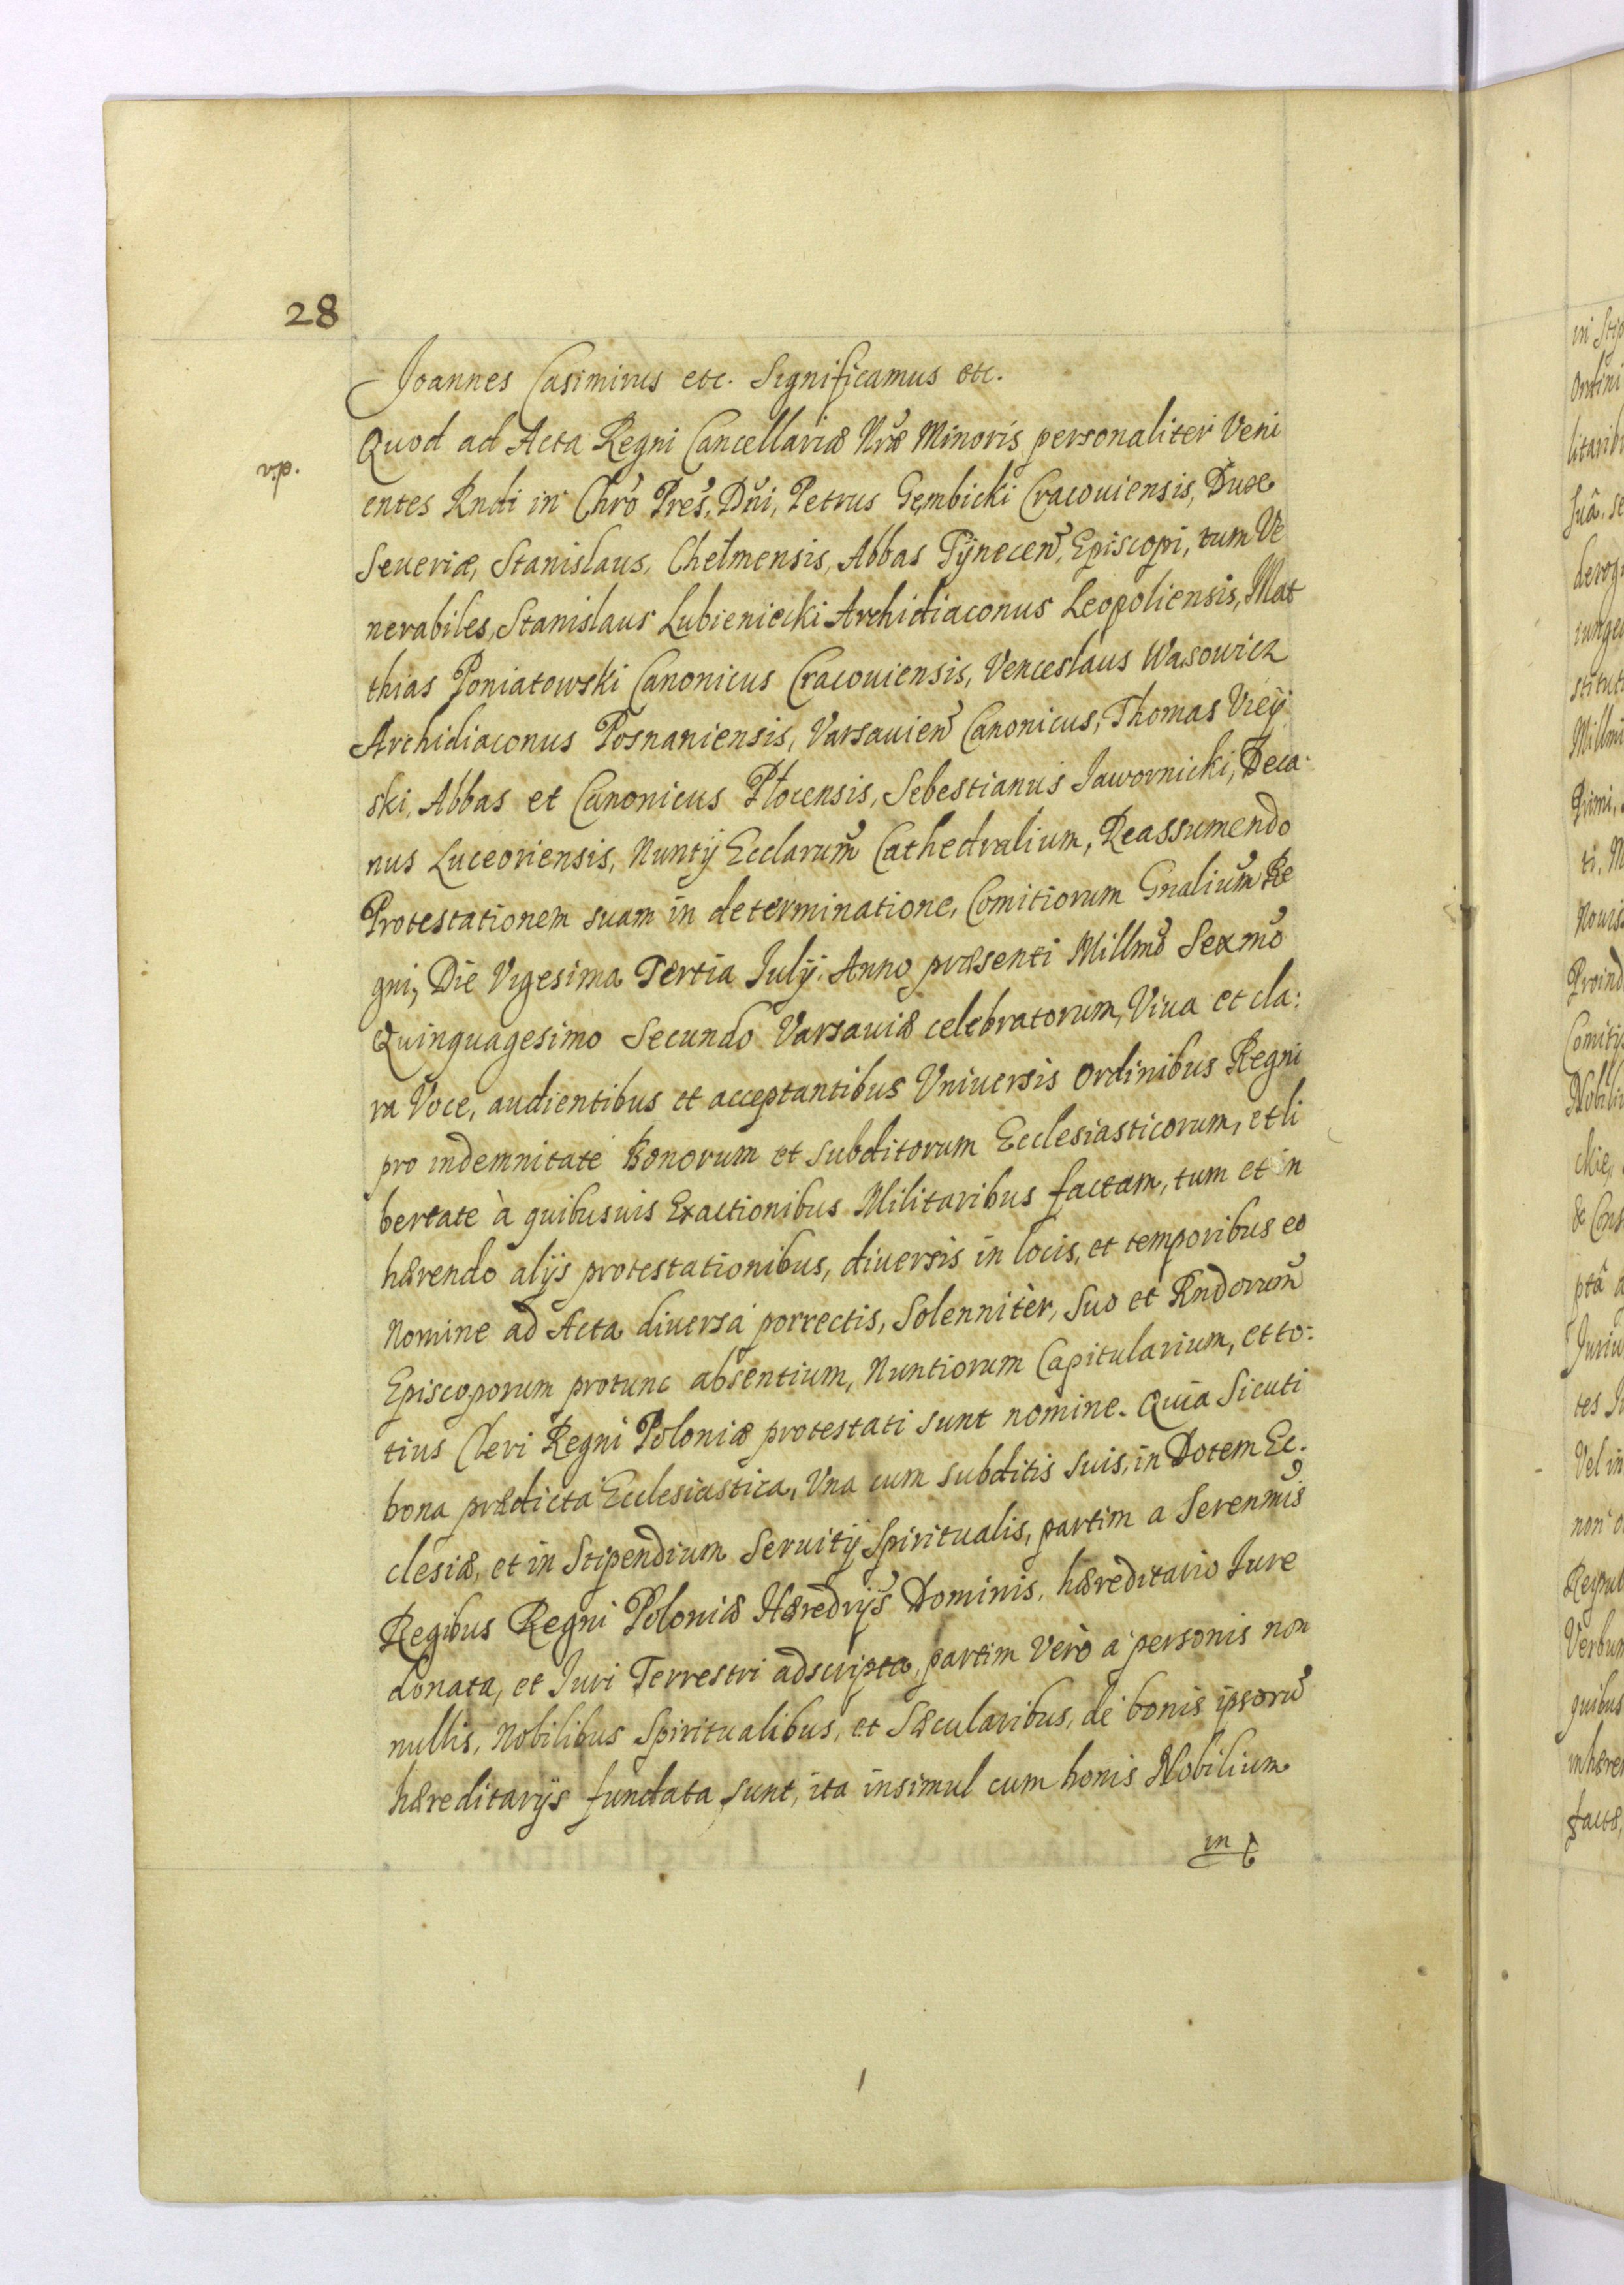 28
Joannes Casimirus etc. Significamus etc.
Quod ad Acta Regni Cancellariæ Nræ Minoris personaliter Veni
v.p.
entes Rndi in Chro Pres, Dni, Petrus Gembicki Cracouiensis, Dux
Seueriæ, Stanislaus, Chelmensis, Abbas Tÿnecen, Episcopi, tum Ve
nerabiles, Stanislaus Lubieniecki Archidiaconus Leopoliensis, Mat
thias Poniatowski Canonicus Cracouiensis, Venceslaus Wasowicz
Archidiaconus Posnaniensis, Varsauien Canonicus, Thomas Vieÿ
ski, Abbas et Canonicus Plocensis, Sebestianus Jawornicki, Deca:
nus Luceoriensis, Nuntÿ Ecclarum Cathedralium, Reassumendo
Protestationem suam in determinatione, Comitiorum Gnalium Re
gni, Die Vigesima Tertia Julÿ. Anno præsenti Millmo Sexmo
Quinquagesimo Secundo Varsauiæ celebratorum, Viua et cla:
ra Voce, audientibus et acceptantibus Vniuersis Ordinibus Regni
pro indemnitate Bonorum et subditorum Ecclesiasticorum, et li
bertate à quibusuis Exactionibus Militaribus factam, tum et in
hærendo alÿs protestationibus, diuersis in locis, et temporibus eo
Nomine ad Acta diuersa porrectis, Solenniter, Suo et Rndorum
Episcoporum protunc absentium, Nuntiorum Capitularium, et to:
tius Cleri Regni Poloniæ protestati sunt nomine. Quia Sicuti
bona prædicta Ecclesiastica, Vna cum subditis suis, in Dotem Ec:
clesiæ, et in Stipendium Seruitÿ Spiritualis, partim a Serenmis
Regibus Regni Poloniæ Hæredrÿs Dominis, hæreditario Jure
donata, et Juri Terrestri adscripta, partim Verò a personis non
nullis, Nobilibus Spiritualibus, et Sæcularibus, de bonis ipsoru
hæreditarÿs fundata sunt, ita insimul cum bonis Nobilium
in